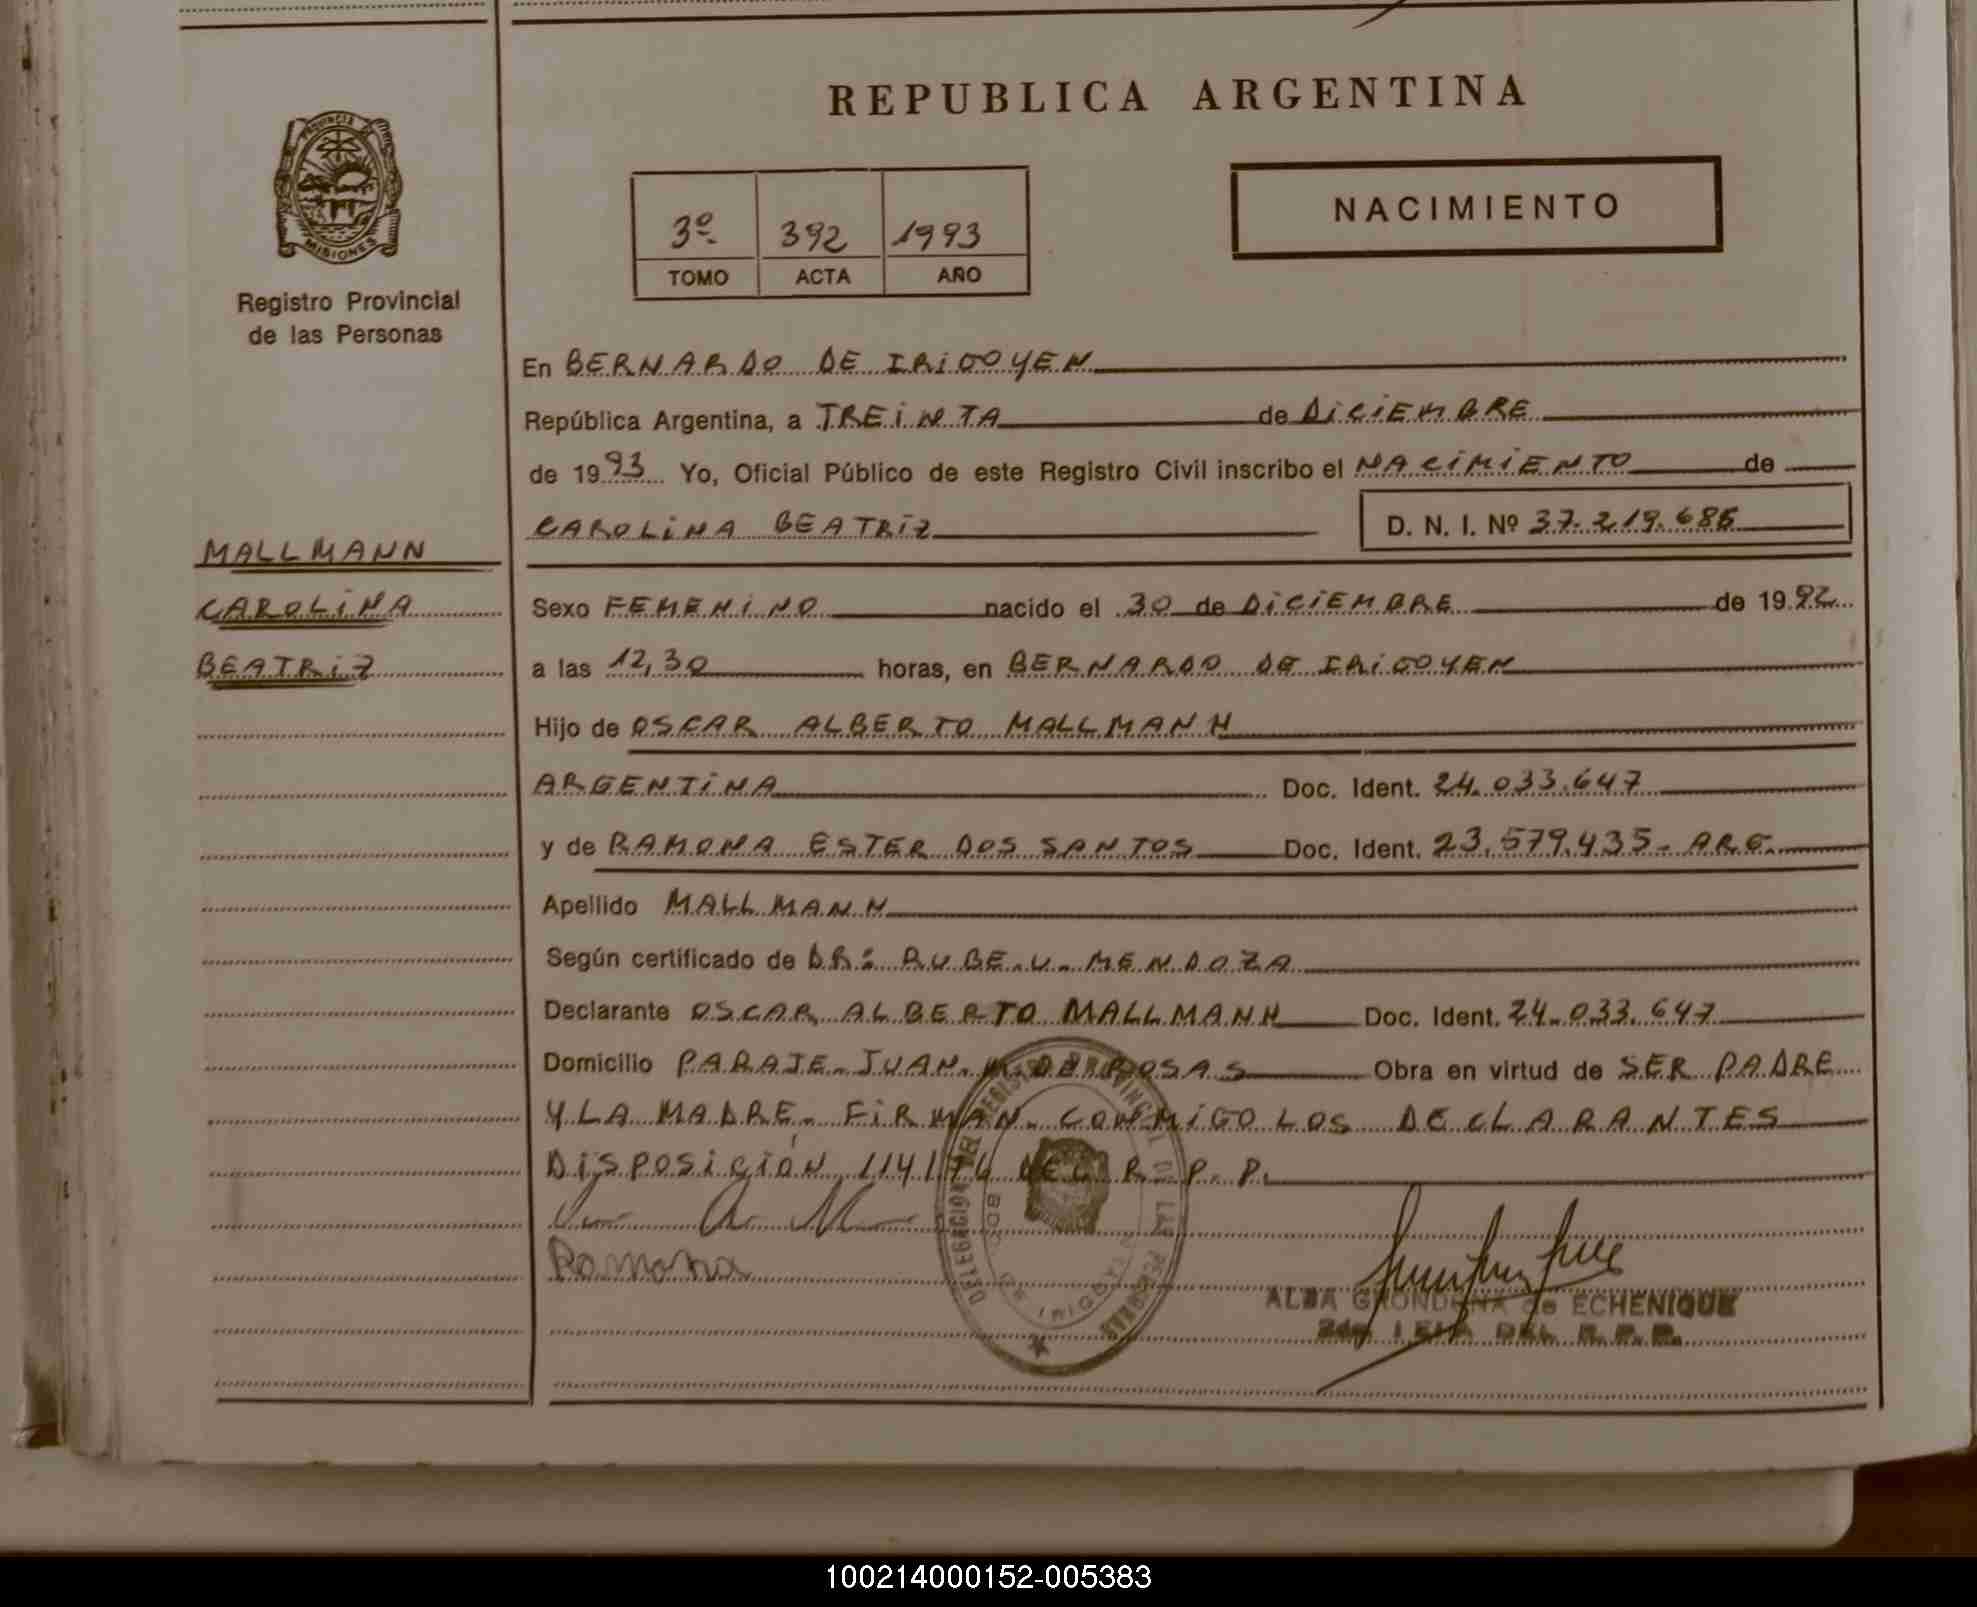 REPUBLICA ARGENTINA
PROVINCIA DE
MISIONES
Registro Provincial
de las Personas
3º 392 1993
TOMO ACTA AÑO
NACIMIENTO
En BERNARDO DE IRIGOYEN
República Argentina, a TREINTA de DICIEMBRE
de 1993 Yo, Oficial Público de este Registro Civil inscribo el NACIMIENTO de
CAROLINA BEATRIZ D. N. I. Nº 37.219.686
MALLMANN
CAROLINA
BEATRIZ
Sexo FEMENINO nacido el 30 de DICIEMBRE de 1992
a las 12,30 horas, en BERNARDO DE IRIGOYEN
Hijo de OSCAR ALBERTO MALLMANN
ARGENTINA Doc. Ident. 24.033.647
y de RAMONA ESTER DOS SANTOS Doc. Ident. 23.579.435- ARG.
Apellido MALLMANN
Según certificado de DR: RUBE.U. MENDOZA
Declarante OSCAR ALBERTO MALLMANN Doc. Ident. 24.033.647
Domicilio PARAJE JUAN M. DE ROSAS Obra en virtud de SER PADRE
Y LA MADRE. FIRMAN CONMIGO LOS DECLARANTES
DISPOSICIÓN DEL R. P. P.
Ramona
DELEGACION DEL REGISTRO PROVINCIAL DE LAS PERSONAS
BDO. DE IRIGOYEN
ALBA GRONDONA de ECHENIQUE
DEL R. P. P.
100214000152-005383